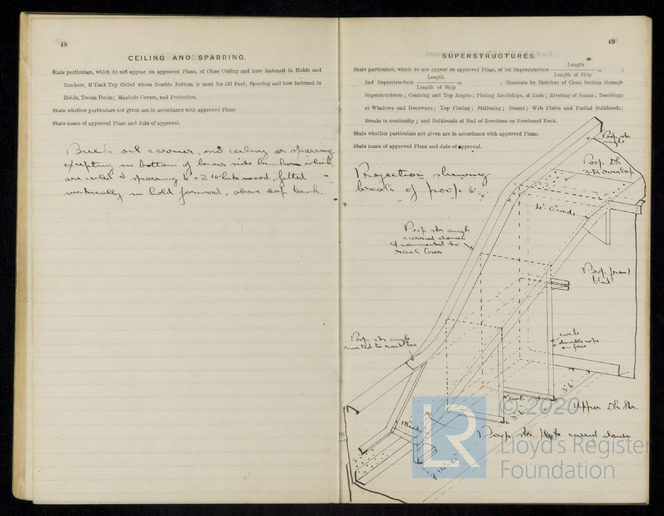 48
CEILING AND SPARRING.
State particulars, which do not appear on approved Plans, of Close Ceiling and how fastened in Holds and
Bunkers; If Tank Top Ceiled where Double Bottom is used for Oil Fuel; Sparring and how fastened in
Holds, Tween Decks; Manhole Covers, and Protection.
State whether particulars not given are in accordance with approved Plans.
State name of approved Plan and date of approval.
Bulk oil carrier, no ceiling or sparring
excepting in bottom of lower side bunkers which
are ceiled & sparring 6 × 2 white wood fitted
vertically in hold forward, above deep tank.
49
SUPERSTRUCTURES.
State particulars, which do not appear on approved Plans, of 1st Superstructure Length / Length of Ship = ;
2nd Superstructure Length / Length of Ship = ; illustrate by Sketches of Cross Section through
Superstructures; Coaming and Top Angles; Plating Amidships, at Ends; Riveting of Seams; Doublings
at Windows and Doorways; Top Plating; Stiffening; Beams; Web Plates and Partial Bulkheads;
Breaks in continuity; and Bulkheads at End of Erections on Freeboard Deck.
State whether particulars not given are in accordance with approved Plans.
State name of approved Plan and date of approval.
Projection shewing
break of poop
Poop str angle
Poop Dk
Poop str angle
curved down
& connected to
Poop front
Poop str angle
3'.6
Upper Dk Str.
Poop str. curved down
© 2020
LR
Lloyd's Register
Foundation